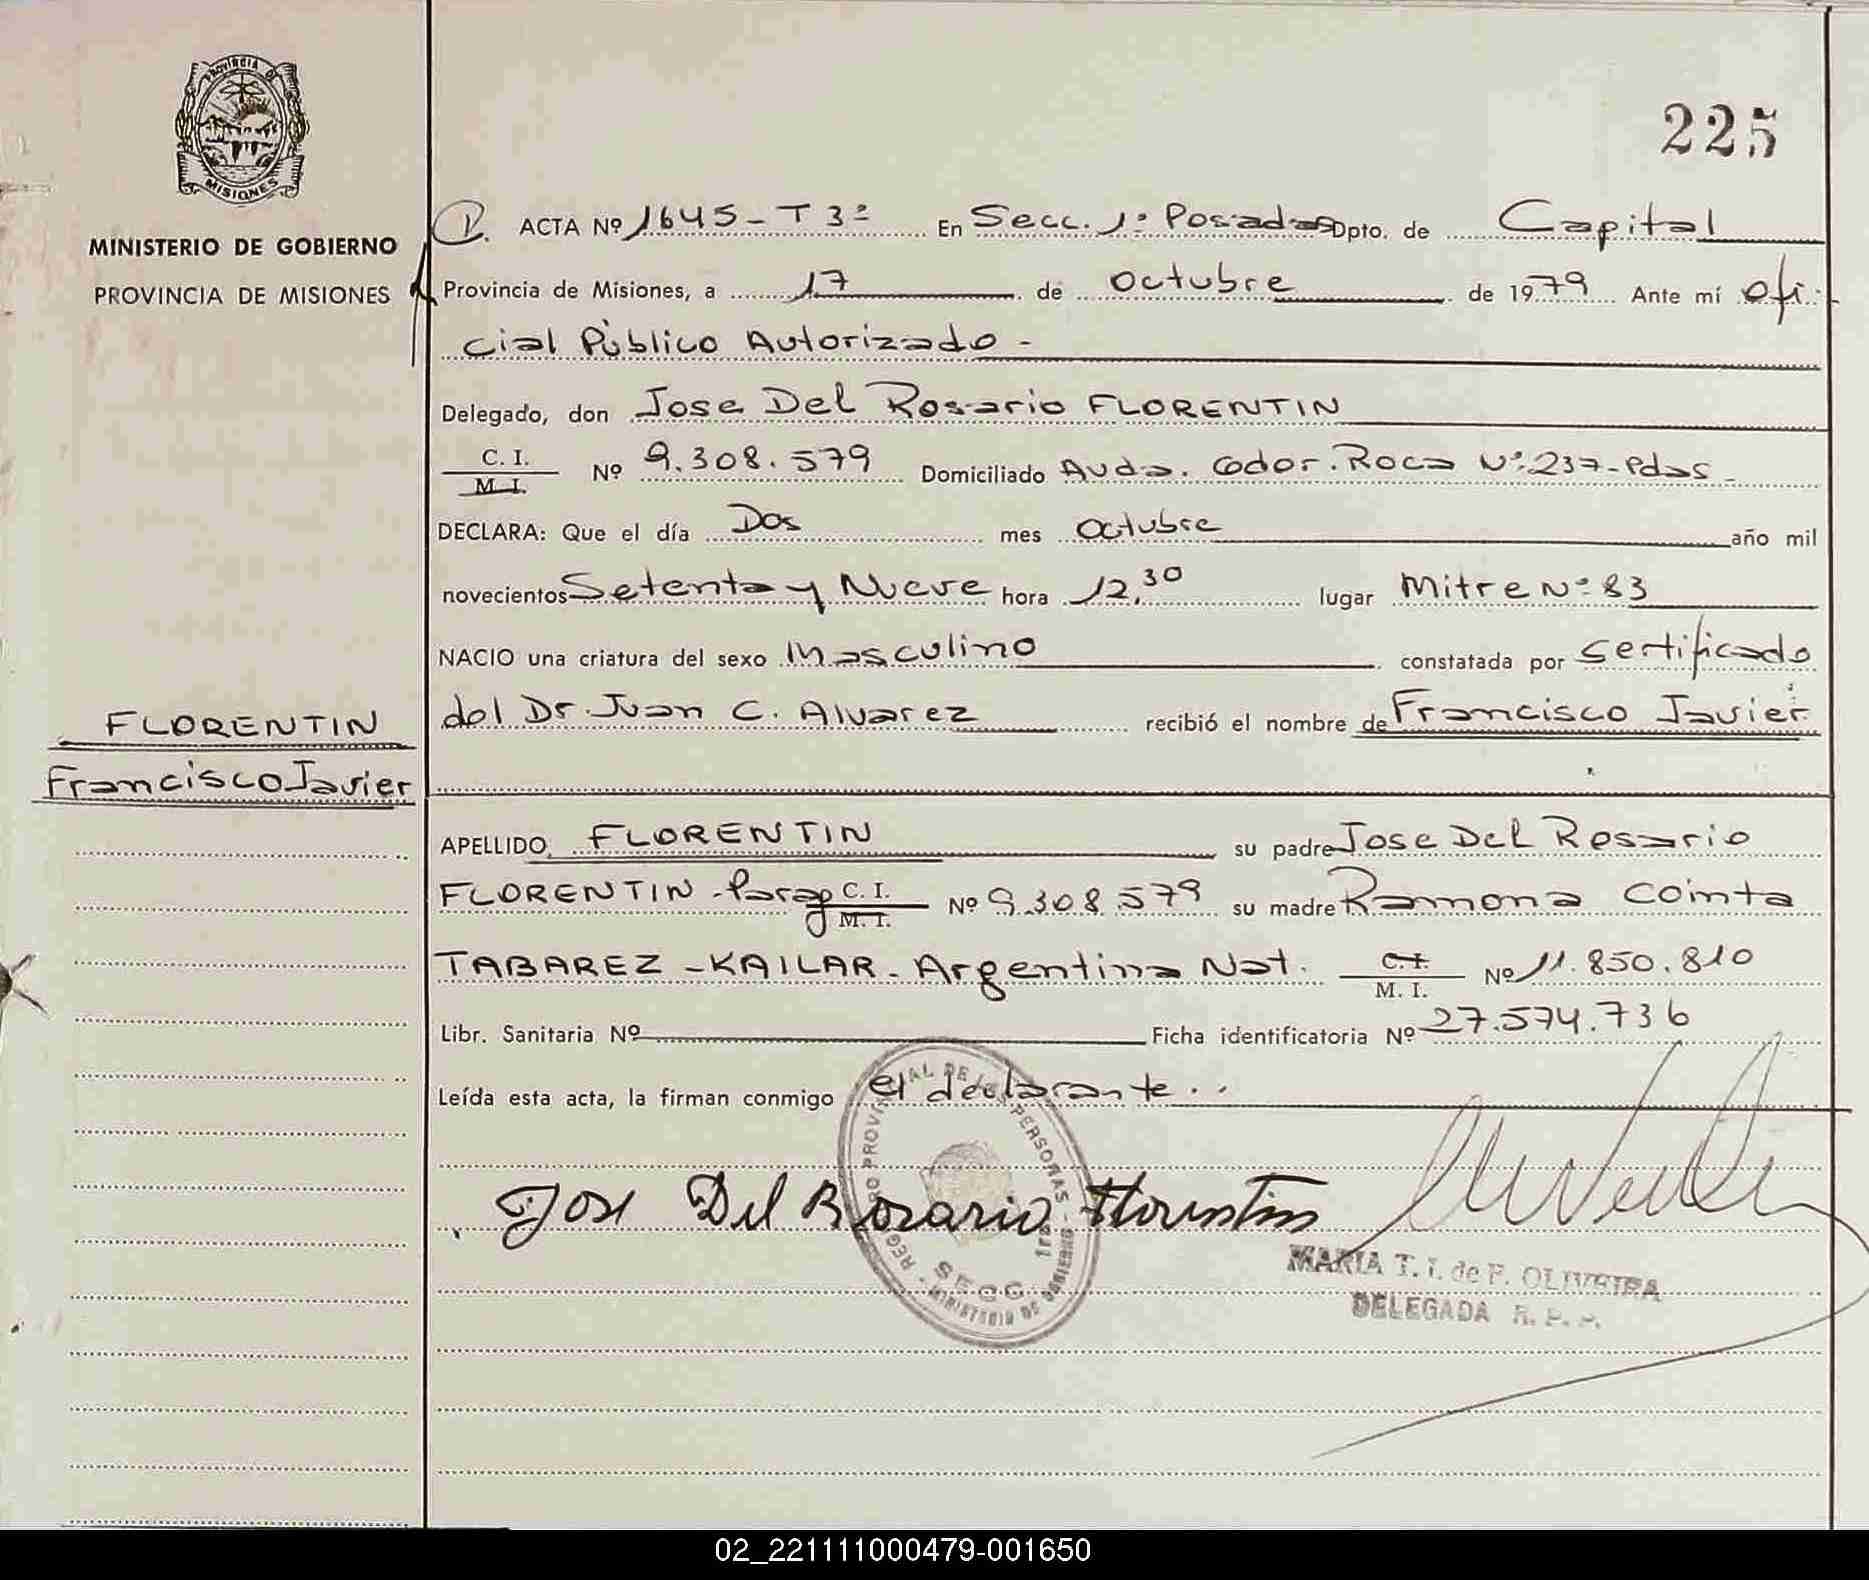 PROVINCIA DE
MISIONES
MINISTERIO DE GOBIERNO
PROVINCIA DE MISIONES
225
ACTA Nº 1645 - T 3º En Secc. 1º Posadas Dpto. de Capital
Provincia de Misiones, a 17 de Octubre de 1979 Ante mí ofi-
cial Público Autorizado -
Delegado, don Jose Del Rosario FLORENTIN
C. I.
M. I. Nº 9.308.579 Domiciliado Avda. Gdor. Roca Nº 237-Pdas -
DECLARA: Que el día Dos mes Octubre año mil
novecientos Setenta y Nueve hora 12,30 lugar Mitre Nº 83
NACIO una criatura del sexo Masculino constatada por Certificado
del Dr. Juan C. Alvarez recibió el nombre de Francisco Javier
FLORENTIN
Francisco Javier
APELLIDO FLORENTIN su padre Jose Del Rosario
FLORENTIN - Parag C. I.
M. I. Nº 9.308.579 su madre Ramona Cointa
TABAREZ - KAILAR - Argentina Nat. C. I.
M. I. Nº 11.850.810
Libr. Sanitaria Nº Ficha identificatoria Nº 27.574.736
Leída esta acta, la firman conmigo el declarante . .
REGISTRO PROVINCIAL DE LAS PERSONAS - 1ra SECC. - MINISTERIO DE GOBIERNO
Jose Del Rosario Florentin
MARIA T. I. de F. OLIVEIRA
DELEGADA R. P. P.
02_221111000479-001650